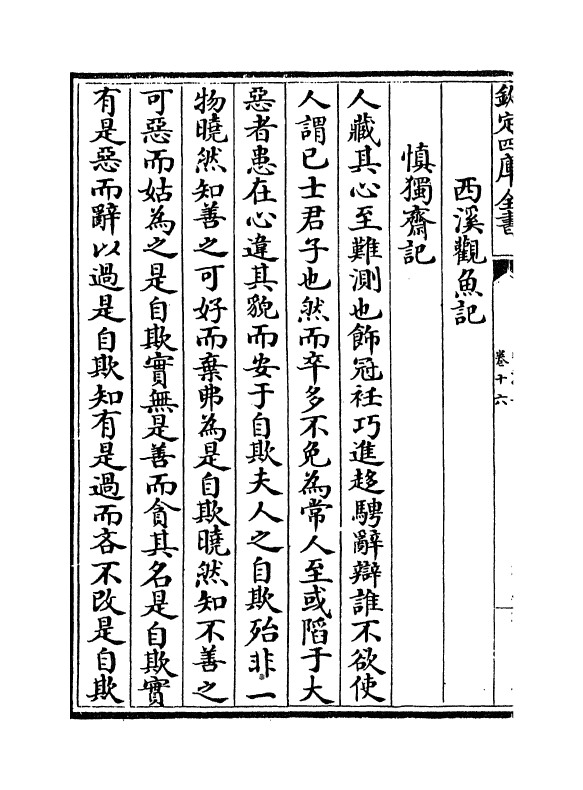 欽定四庫全書
卷十六
西溪觀魚記
慎獨齋記
人藏其心至難測也飾冠衽巧進趍騁辭辯誰不欲使
人謂已士君子也然而卒多不免為常人至或䧟于大
惡者患在心違其貌而安于自欺夫人之自欺殆非一
物曉然知善之可好而棄弗為是自欺曉然知不善之
可惡而姑為之是自欺實無是善而貪其名是自欺實
有是惡而辭以過是自欺知有是過而吝不改是自欺